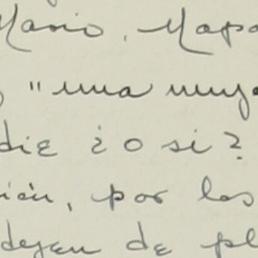 Mario, Mapa
" una muje
die ¿o si?
ión, por los
dejen de pl